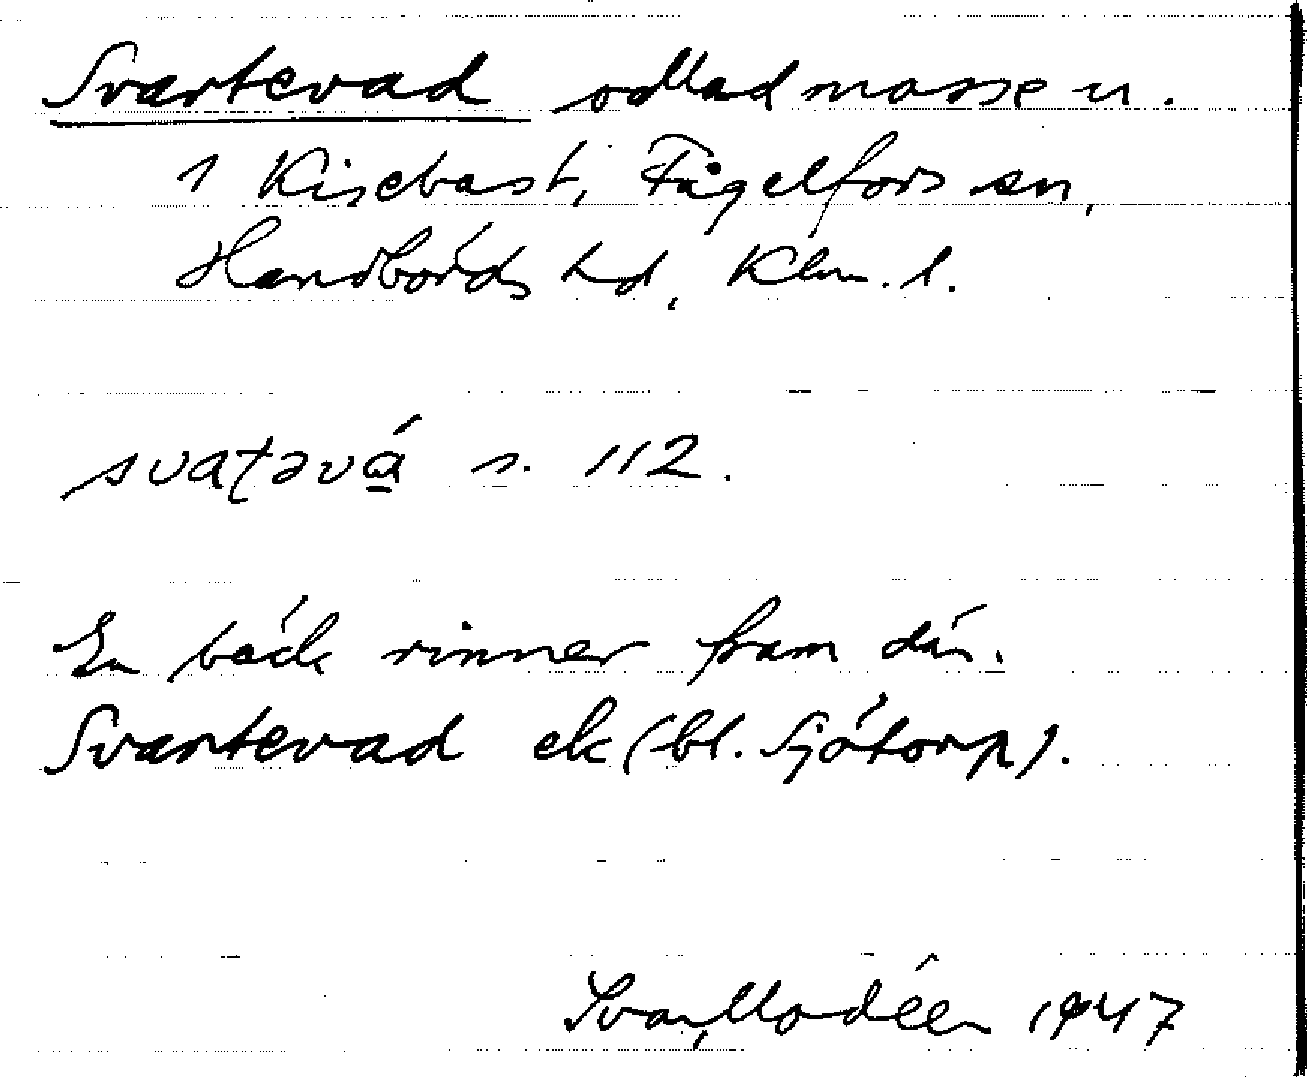 Svartevad odlad mosse u.
1 Kisebast, Fågelfors sn,
Handbörds hd, Klm. l.
svaṭəvá s. 112.
En bäck rinner fram där.
Svartevad ek (bl. Sjötorp).
Ivar Modéer 1947